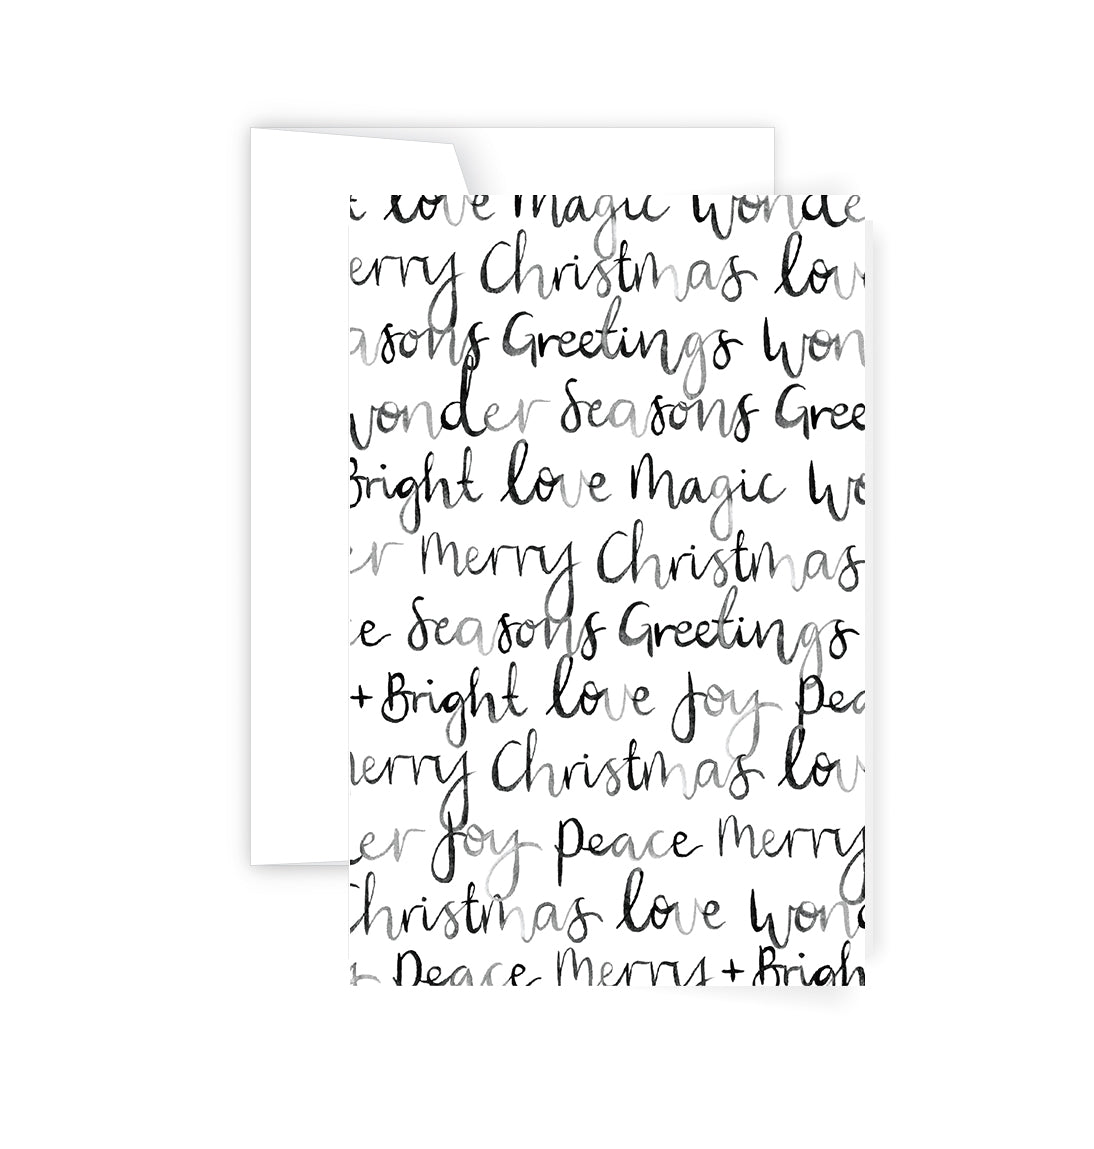 t love Magic Wonde
erry Christmas lov
asons Greetings Won
wonder Seasons Gree
Bright love Magic Wo
er Merry Christmas
e Seasons Greetings
+ Bright love Joy Pea
erry Christmas lov
er Joy Peace Merry
Christmas love Wond
Peace Merry + Brigh